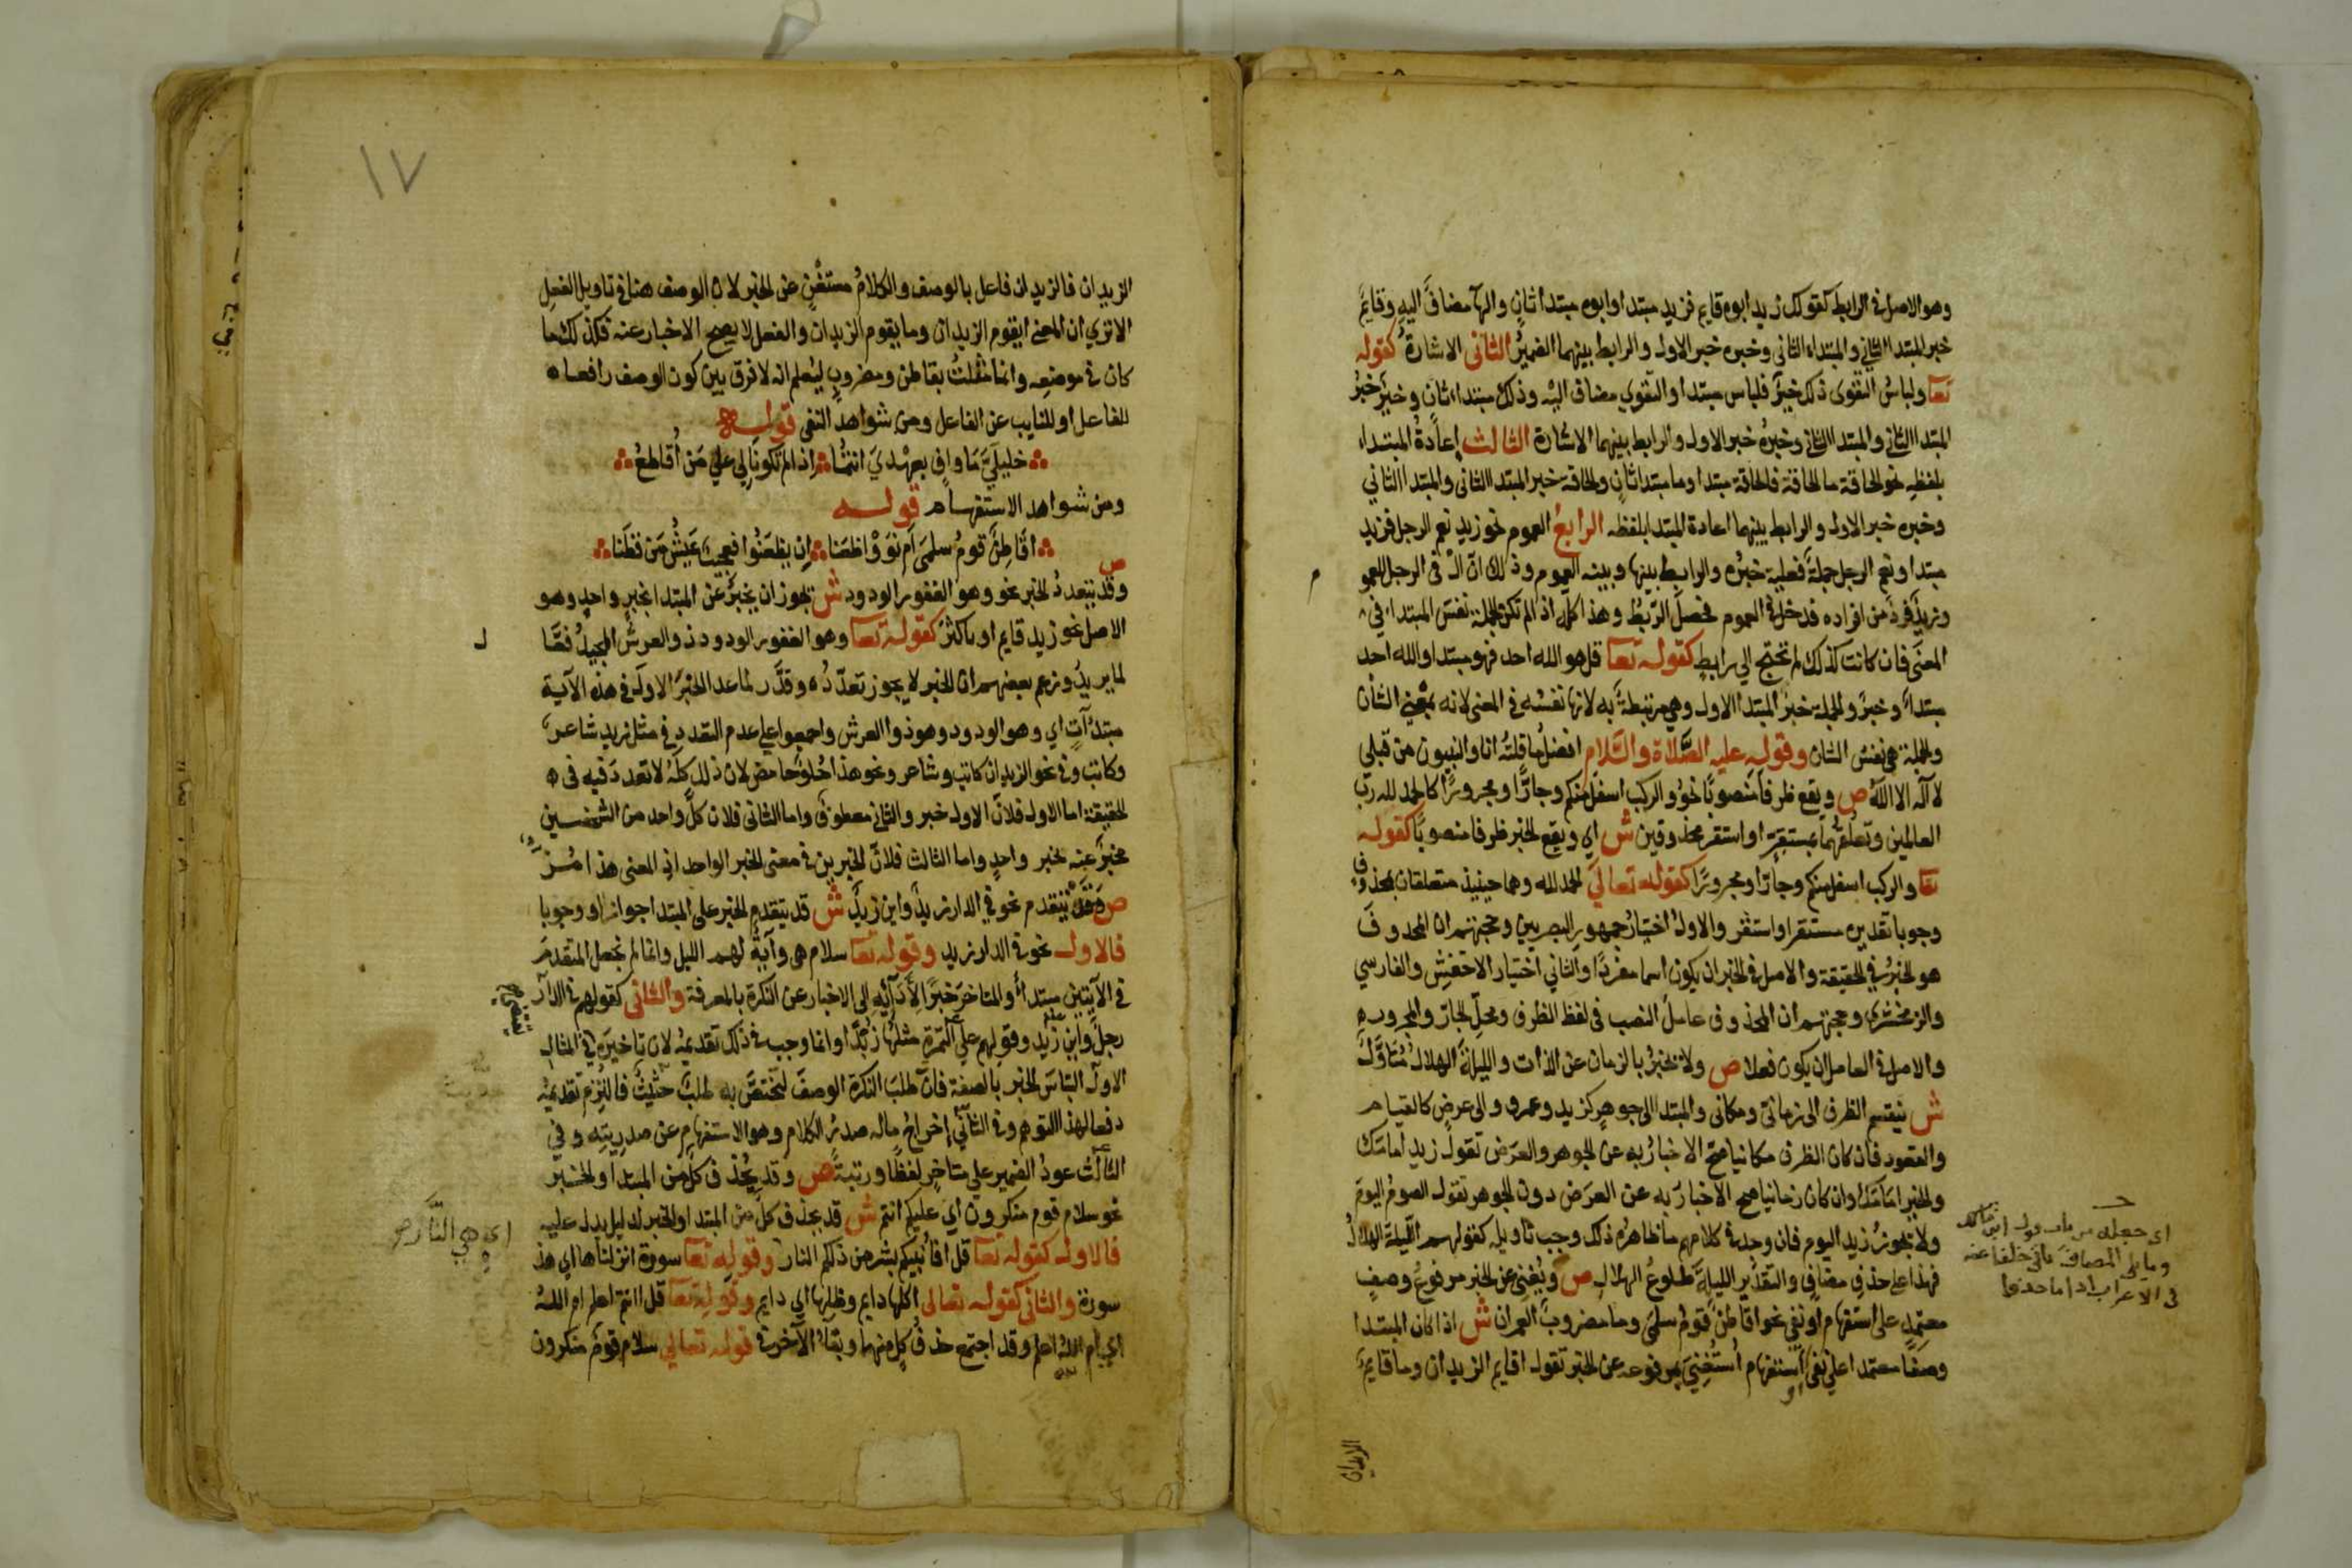 وهو الاصل في الرابط كقولك زيد ابوه قايم فزيد مبتدا وابوه مبتدا ثان والها مضاف اليه وقايم
خبر المبتدا الثاني والمبتداء الثاني وخبره خبر الاول والرابط بينهما الضمير الثاني الاشارة كقوله
تعا ولباس التقوى ذلك خير فلباس مبتدا والتقوي مضاف اليه وذلك مبتداء ثان وخير خبر
المبتدا الثاني والمبتدا الثاني وخبره خبر الاول والرابط بينهما الاشارة الثالث إعادة المبتداء
بلفظه نحو الحاقة ما الحاقة فالحاقة مبتدا وما مبتدا ثان والحاقة خبر المبتدا الثاني والمبتدا الثاني
وخبره خبر الاول والرابط بينهما اعادة المبتدا بلفظه الرابع العموم نحو زيد نعم الرجل فزيد
مبتدا ونعم الرجل جملة فعلية خبره والرابط بينها وبينه العموم وذلك ان ال في الرجل للعمو م
وزيد فرد من افراده فدخل في العموم فحصل الربط وهذا كله اذا لم تكن الجملة نفس المبتداء في
المعنى فان كانت كذلك لم تحتج الي رابط كقوله تعا قل هو الله احد فهو مبتدا والله احد
مبتداء وخبر والجملة خبر المبتدا الاول وهي مرتبطة به لانها نفسه في المعنى لانه بمعني الشان
والجملة هي نفس الشان وقوله عليه الصلاة والسلام افضل ما قلته انا والنبيون من قبلي
لا اله الا الله ص ويقع ظرفا منصوبا نحو والركب اسفل منكم وجارا ومجرورا كالحمد لله رب
العالمين وتعلقهما بمستقر او استقر محذوفين ش اي ويقع الخبر ظرفا منصوبا كقوله
تعا والركب اسفل منكم وجارا ومجرورا كقوله تعالي الحمد لله وهما حينيذ متعلقان بمحذوف
وجوبا تقديره مستقر او استقر والاول اختيار جمهور البصريين وحجتهم ان المحذوف
هو الخبر في الحقيقة والاصل في الخبر ان يكون اسما مفردا والثاني اختيار الاخفش والفارسي
والزمخشري وحجتهم ان المحذوف عامل النصب في لفظ الظرف ومحل الجار والمجرور
والاصل في العامل ان يكون فعلا ص ولا يخبر بالزمان عن الذات والليلة الهلال متاول
ش ينقسم الظرف الى زماني ومكاني والمبتدا الى جوهر كزيد وعمرو والى عرض كالقيام
والقعود فان كان الظرف مكانيا صح الاخبار به عن الجوهر والعرض تقول زيد امامك
والخير امامك وان كان زمانيا صح الاخبار به عن العرض دون الجوهر تقول الصوم اليوم
ولا يجوز زيد اليوم فان وجد في كلامهم ما ظاهره ذلك وجب تاويله كقولهم الليلة الهلال
فهذا علي حذف مضاف والتقدير الليلة طلوع الهلال ص ويغني عن الخبر مرفوع وصف
معتمد على استفهام او نفي نحو اقاطن قوم سلمى وما مضروب العمران ش اذا كان المبتدا
وصفا معتمدا على نفي او استفهام استغني بمرفوعه عن الخبر تقول اقايم الزيدان وما قايم
الزيدان
اي جعله من باب
وما يلي المضاف ياتي خلفا عنه
في الاعراب اذا ما حذفا
١٧
الزيدان فالزيدان فاعل بالوصف والكلام مستغن عن الخبر لان الوصف هنا في تاويل الفعل
الا تري ان المعنى ايقوم الزيدان وما يقوم الزيدان والفعل لا يصح الاخبار عنه فكذلك ما
كان في موضعه وانما مثلت بقاطن ومضروب ليعلم انه لا فرق بين كون الوصف رافعا
للفاعل او للنايب عن الفاعل ومن شواهد النفي قوله
خليلي ما واف بعهدي انتما اذا لم تكونا لي علي من أقاطع
ومن شواهد الاستفهام قوله
اقاطن قوم سلمى ام نووا ظعنا ان يظعنوا فعجيب عيش من قطنا
ص
وقد يتعدد الخبر نحو وهو الغفور الودود ش يجوز ان يخبر عن المبتدا بخبر واحد وهو
الاصل نحو زيد قايم او باكثر كقوله تعا وهو الغفور الودود ذو العرش المجيد فعا ل
لما يريد وزعم بعضهم ان الخبر لا يجوز تعدده وقدر لما عدا الخبر الاول في هذه الآية
مبتدآت اي وهو الودود وهو ذوا العرش واجمعوا علي عدم التعدد في مثل زيد شاعر
وكاتب وفي نحو الزيدان كاتب وشاعر ونحو هذا حلو حامض لان ذلك كله لا تعدد فيه في
الحقيقة اما الاول فلان الاول خبر والثاني معطوف واما الثاني فلان كل واحد من الشخصين
مخبر عنه بخبر واحد واما الثالث فلان الخبرين في معنى الخبر الواحد اذ المعنى هذا مز
ص وقد يتقدم نحو في الدار زيد واين زيد ش قد يتقدم الخبر على المبتدا جوازا او وجوبا
فالاول نحو في الدار زيد وقوله تعا سلام هي وآية لهم الليل وانما لم نجعل المتقدم
في الآيتين مبتدأ والمتاخر خبرا لأدائه الى الاخبار عن النكرة بالمعرفة والثاني كقولهم في الدار
رجل واين زيد وقولهم علي التمرة مثلها زبدا وانما وجب في ذلك تقديمه لان تاخيره في المثال
الاول التباس الخبر بالصفة فان طلب النكرة الوصف لتختص به طلب حثيث فالتزم تقديمه
دفعا لهذا التوهم وفي الثاني إخراج ماله صدر الكلام وهو الاستفهام عن صدريته وفي
الثالث عود الضمير علي متاخر لفظا ورتبة ص وقد يحذف كل من المبتدا والخبر
نحو سلام قوم منكرون أي عليكم انتم ش قد يحذف كل من المبتدا والخبر لدليل يدل عليه
فالاول كقوله تعا قل افأنبيكم بشر من ذلكم النار وقوله تعا سورة انزلناها اي هذ
سورة والثاني كقوله تعالى اكلها دايم وظلها اي دايم وقوله تعا قل اانتم اعلم ام الله
اي ام الله اعلم وقد اجتمع حذف كل منهما وبقاء الآخر في قوله تعالي سلام قوم منكرون
اي هي النار